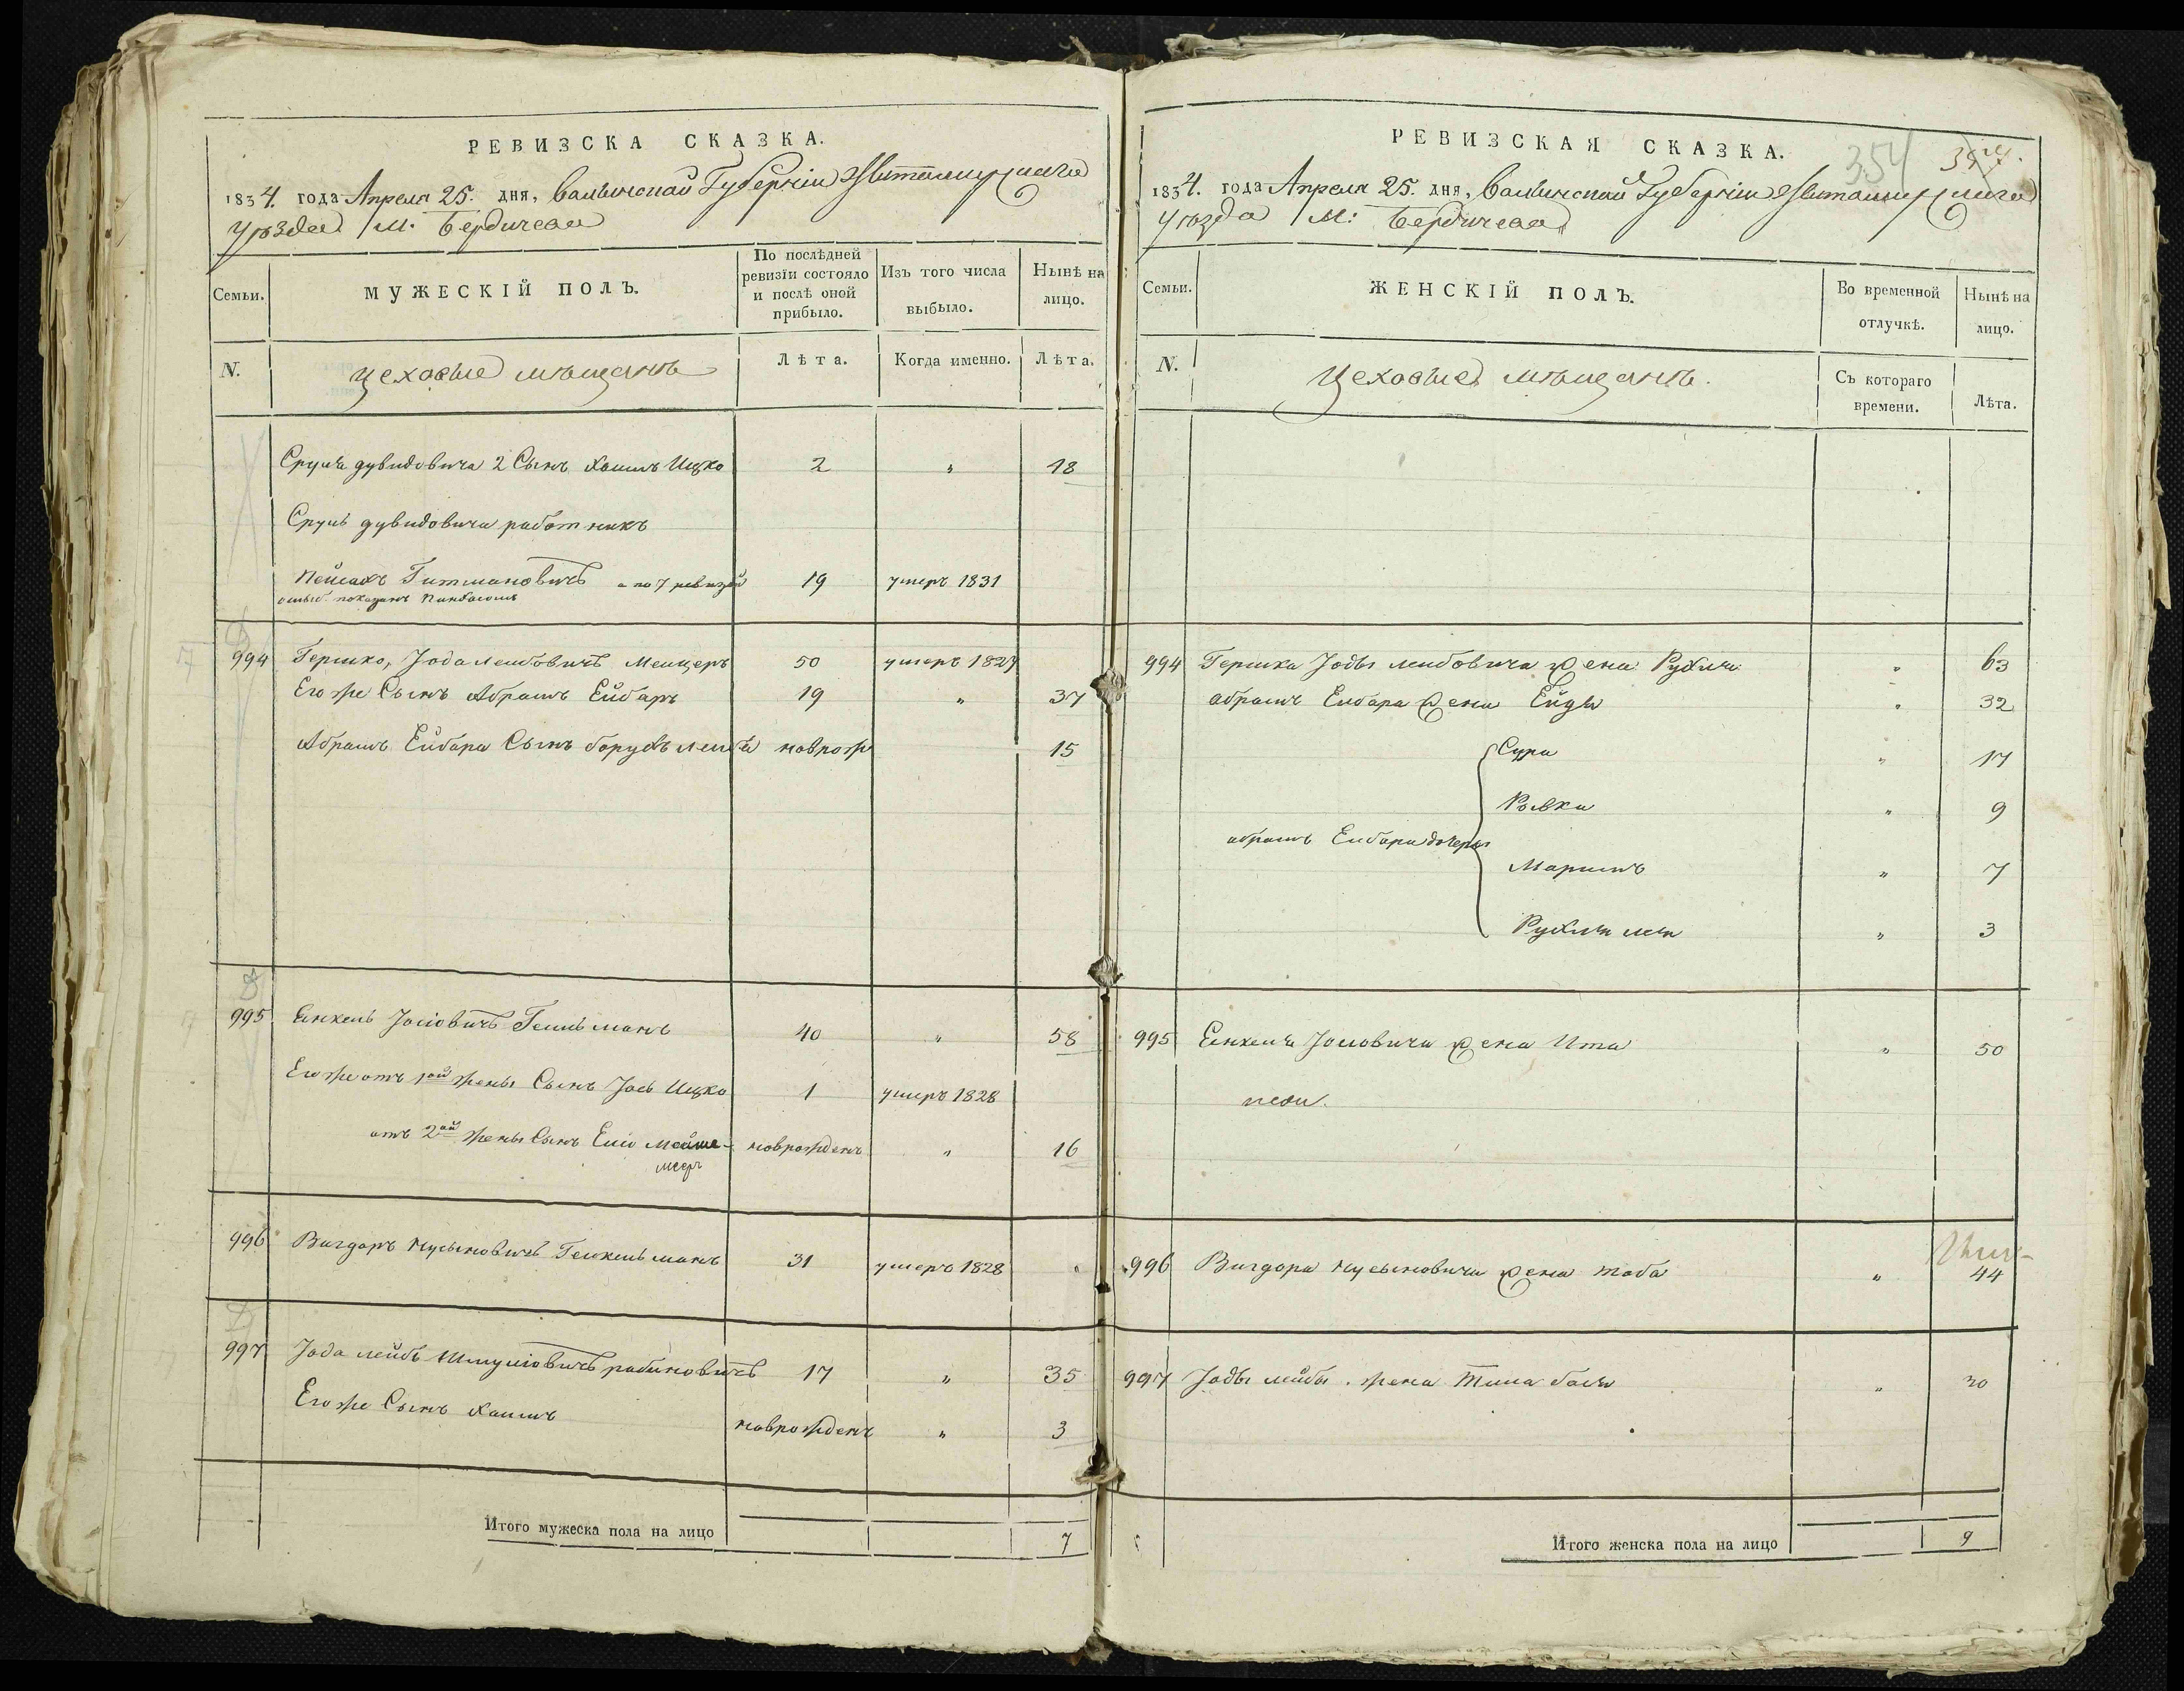 РЕВИЗСКА СКАЗКА.
1834. года Апреля 25. дня, Валынской Губернии Житомирскаго
уѣзда М. Бердичева
Семьи.
МУЖЕСКІЙ ПОЛЪ.
По послѣдней ревизіи состояло и послѣ оной прибыло.
Изъ того числа выбыло.
Нынѣ на лицо.
N.
цеховые мѣщанъ
Лѣта.
Когда именно.
Лѣта.
Сруля дувидовича 2 Сынъ Хаимъ Ицко 2 " 18
Сруль дувидовича работникъ
Пейсахъ Гитмановичъ а по 7 ревизіи 19 умеръ 1831
ошыб. показанъ
994 Гершко, Јода Лейбовичъ 50 умеръ 1829
Его же Сынъ Абрамъ Ейбаръ 19 " 37
Абрамъ Ейбара Сынъ борухъ новрож 15
995 Янкель Јосіовичъ 40 " 58
Его же отъ 1ой жены Сынъ Јось Ицко 1 умеръ 1828
отъ 2ой жены Сынъ новрожденъ " 16
996 Вигдоръ Нусыновичъ 31 умеръ 1828 "
997 Јода лейбъ Шмуліовичъ рабиновичъ 17 " 35
Его же Сынъ Хаимъ новрожденъ " 3
Итого мужеска пола на лицо 7
РЕВИЗСКАЯ СКАЗКА.
354
1834. года Апреля 25. дня, Валынской Губернии Житомирскаго
уѣзда М: Бердичева
Семьи.
ЖЕНСКІЙ ПОЛЪ.
Во временной отлучкѣ.
Нынѣ на лицо.
N.
Цеховые мѣщанъ.
Съ котораго времени.
Лѣта.
994 Гершка Јоды лейбовича жена Рухля " 63
абрамъ Ейбара жена Ейдя " 32
Сура " 17
Рывка " 9
абрамъ Ейбара дочеры
Маримъ " 7
Рухля лея " 3
995 Янкеля Јосіовича жена Ита " 50
996 Вигдора Нусыновича жена таба " 44
997 Јоды лейбы. жена бася " 30
Итого женска пола на лицо 9